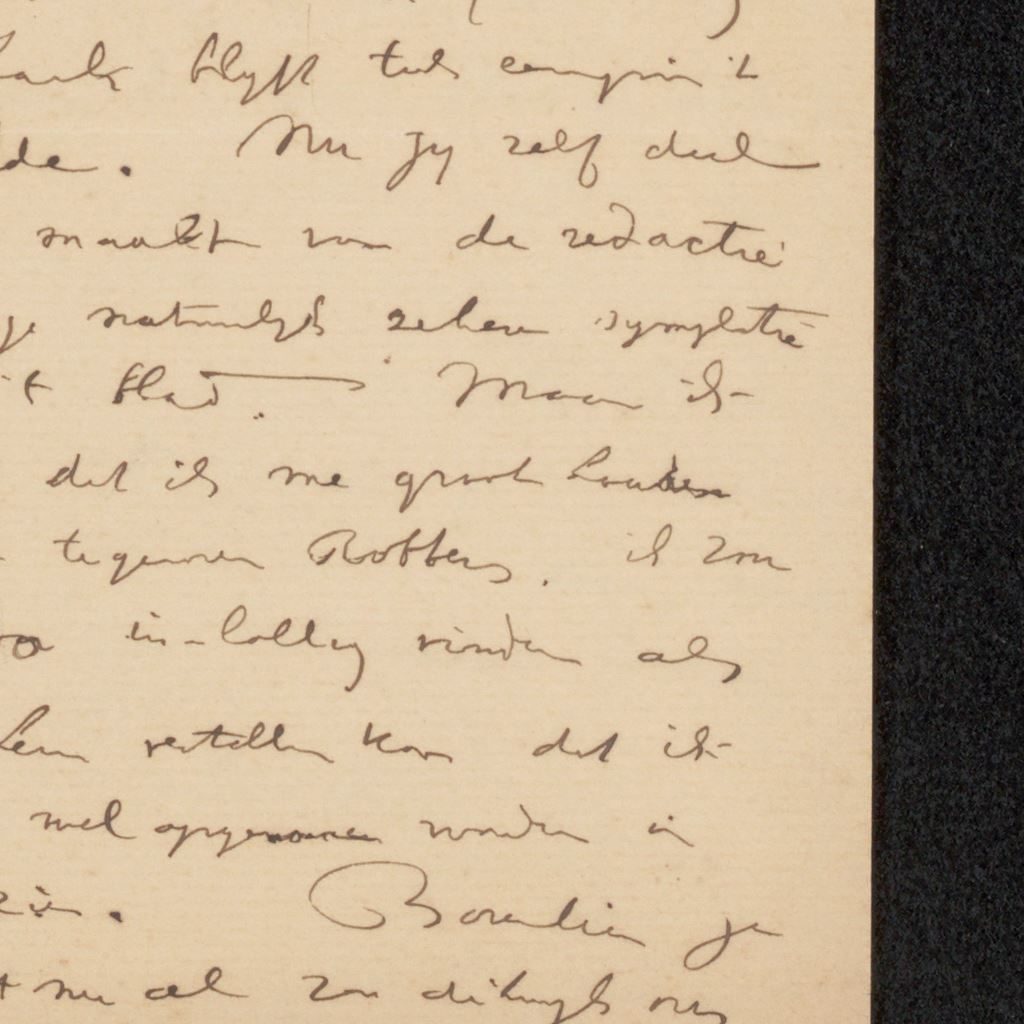 blyft toch eenigzin 't
de. Nu jy zelf deel
maakt van de redactie
je natuurlyk zekere sympathie
't blad. Maar ik
dat ik me groot houden
tegenover Robbers. ik zou
zoo in-lollig vinden als
hem vertellen kon dat ik
wel opgenomen worden in
Bovendien je
t nu al zoo dikwyls